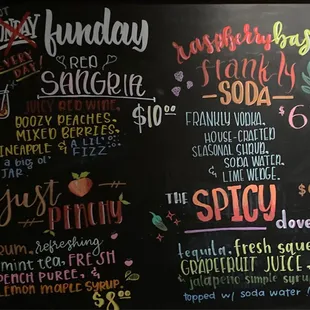 NOT
MONDAY
EVERY
DAY!
funday
RED
SANGRIA
$10.00
JUICY RED WINE,
BOOZY PEACHES,
MIXED BERRIES,
PINEAPPLE & A LIL'
FIZZ
a BIG OL'
JAR.
just
PEACHY
RUM, refreshing
mint tea, FRESH
PEACH PUREE, &
LEMON MAPLE SYRUP.
$8.00
raspberry bas
frankly
SODA
$6
FRANKLY VODKA,
HOUSE-CRAFTED
SEASONAL SHRUB,
SODA WATER,
& LIME WEDGE.
THE SPICY
dove
tequila, fresh sque
GRAPEFRUIT JUICE,
& jalapeño simple syru
topped w/ soda water